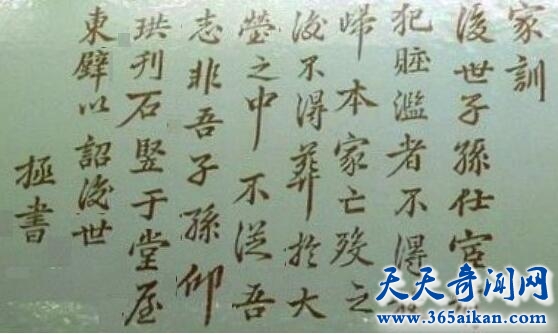 家訓
後世子孫仕宦
犯賍濫者不得
歸本家亡歿之
後不得葬於大
塋之中不從吾
志非吾子孫仰
珙刊石竪于堂屋
東壁以詔後世
拯書
天天奇闻网
www.365aikan.com